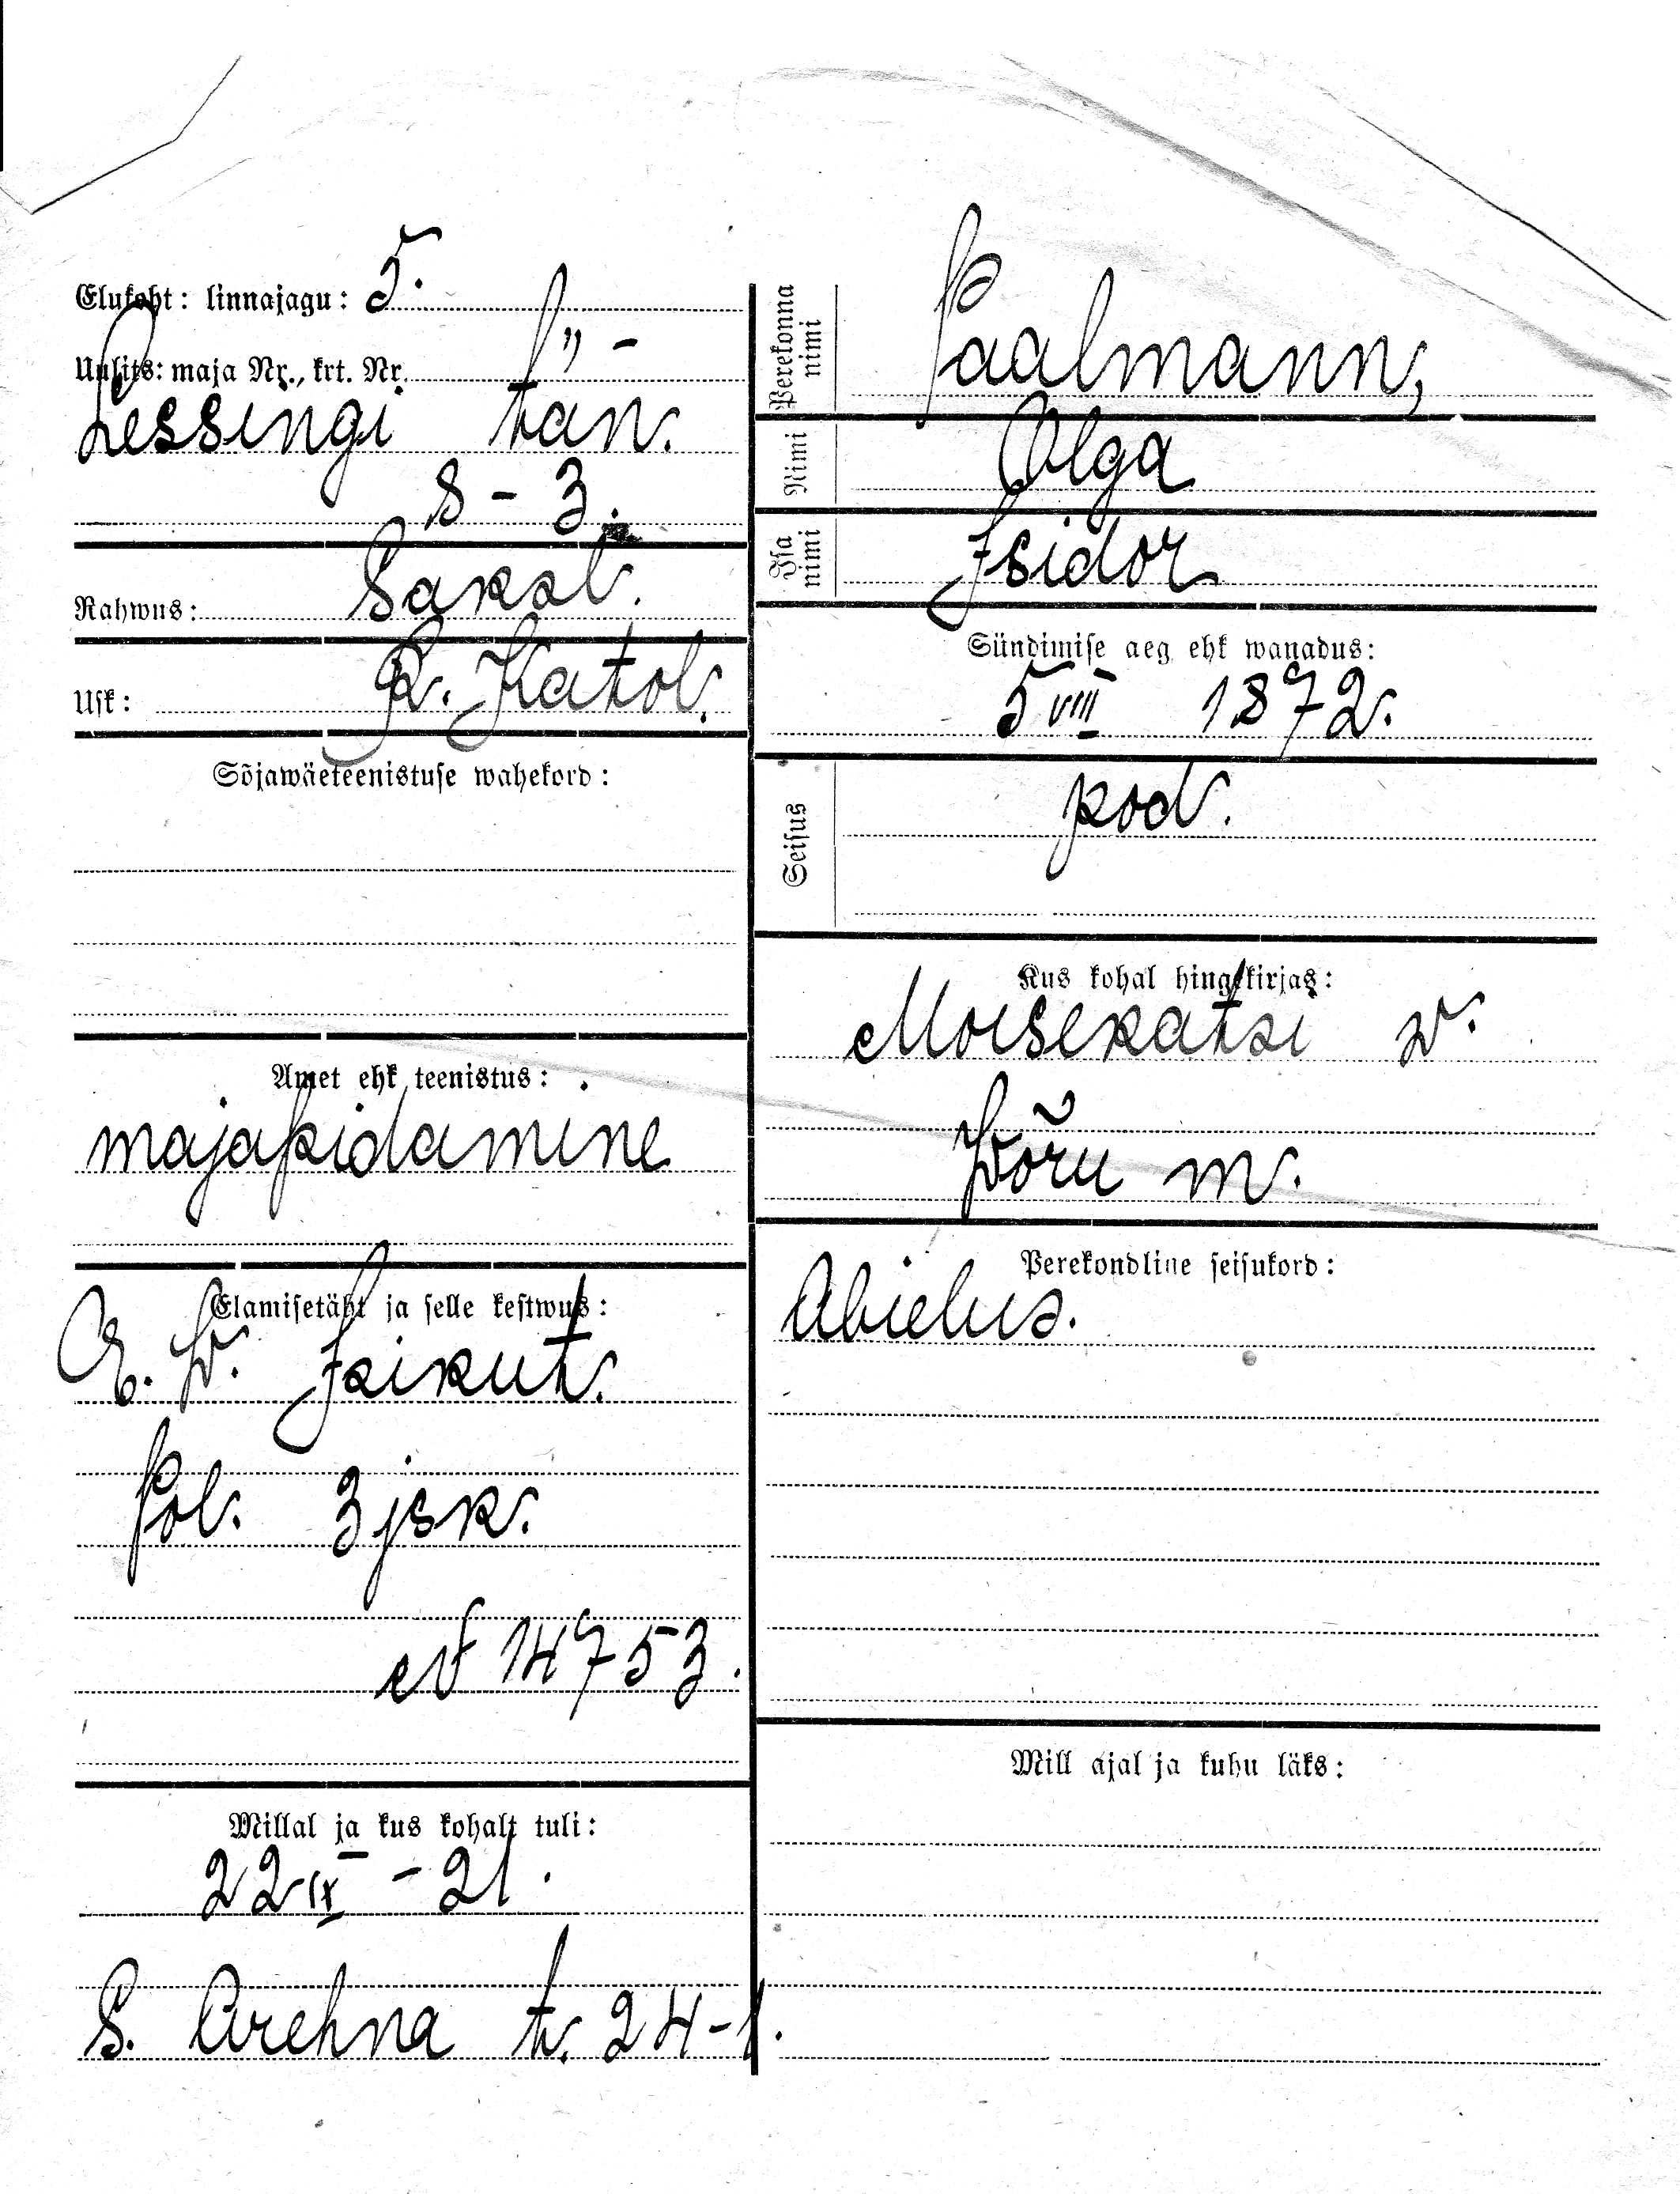 Elukoht: linnajagu: 5.
Uulits: maja Nr., krt. Nr.
Lessingi tän.
8 - 3.
Rahwus: Saksl.
Usk: R. Katol.
Sõjawäeteenistuse wahekord:
Amet ehk teenistus:
majapidamine
Elamisetäht ja selle kestwus:
E. W. Isikut.
Pol. 3 jsk.
№ 14753.
Millal ja kus kohalt tuli:
22 IX - 21.
S. Arehna t. 24-1.
Perekonna nimi Paalmann,
Nimi Olga
Isa nimi Isidor
Sündimise aeg ehk wanadus:
5 VIII 1872.
Seisus kod.
Kus kohal hingekirjas:
Moisekatsi w.
Wõru m.
Perekondline seisukord:
Abielus.
Mill ajal ja kuhu läks: